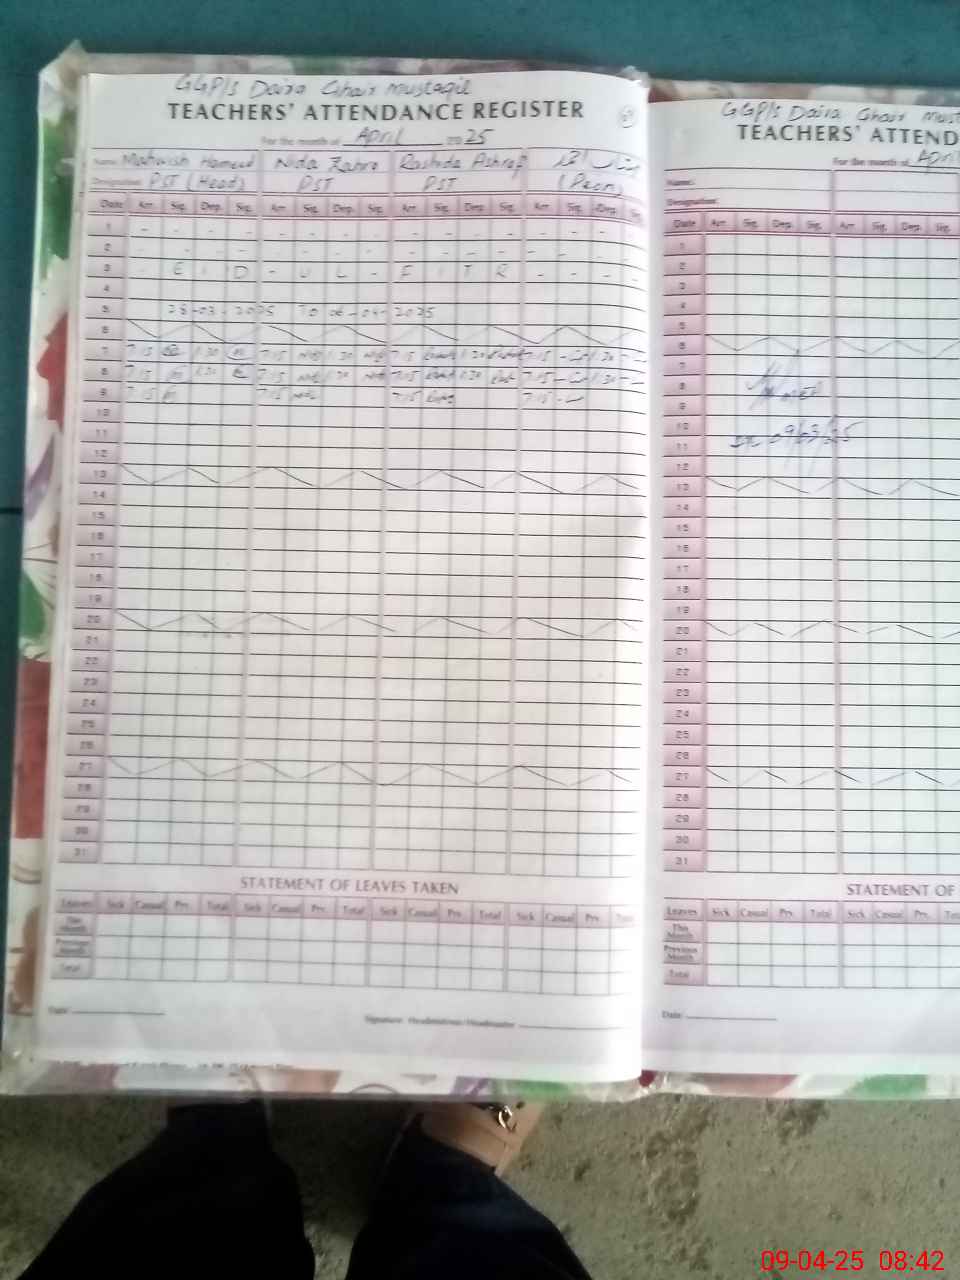 GGP/S Daira Ghair Mustaqil
TEACHERS' ATTENDANCE REGISTER
For the month of April 2025
Name: Mahwish Hameed Nida Zahra Rashida Ashraf
Designation: PST (Head) PST PST (Peon)
Date Arr. Sig. Dep. Sig. Arr. Sig. Dep. Sig. Arr. Sig. Dep. Sig. Arr. Sig. Dep. Sig.
1 - - - - - - - - - - - - - - -
2 - - - - - - - - - - - -
3 - E I D - U L - F I T R - - - -
4
5 28-03-2025 To 06-04-2025
6
7 7:15 1:30 7:15 1:30 7:15 1:30 7:15 1:30
8 7:15 1:30 7:15 1:30 7:15 1:30 7:15 1:30
9 7:15 7:15 7:15 7:15
10
11
12
13
14
15
16
17
18
19
20
21
22
23
24
25
26
27
28
29
30
31
STATEMENT OF LEAVES TAKEN
Leaves Sick Casual Prv. Total Sick Casual Prv. Total Sick Casual Prv. Total Sick Casual Prv. Total
This Month
Previous Month
Total
Date:
Signature Headmistress/Headmaster
GGP/S Daira Ghair Must
TEACHERS' ATTEND
For the month of April
Name:
Designation:
Date Arr. Sig. Dep. Sig. Arr. Sig. Dep. Sig.
1
2
3
4
5
6
7
8
9
10
11
12
13
14
15
16
17
18
19
20
21
22
23
24
25
26
27
28
29
30
31
09/03/25
STATEMENT OF
Leaves Sick Casual Prv. Total Sick Casual Prv. Total
This Month
Previous Month
Total
Date:
09-04-25 08:42